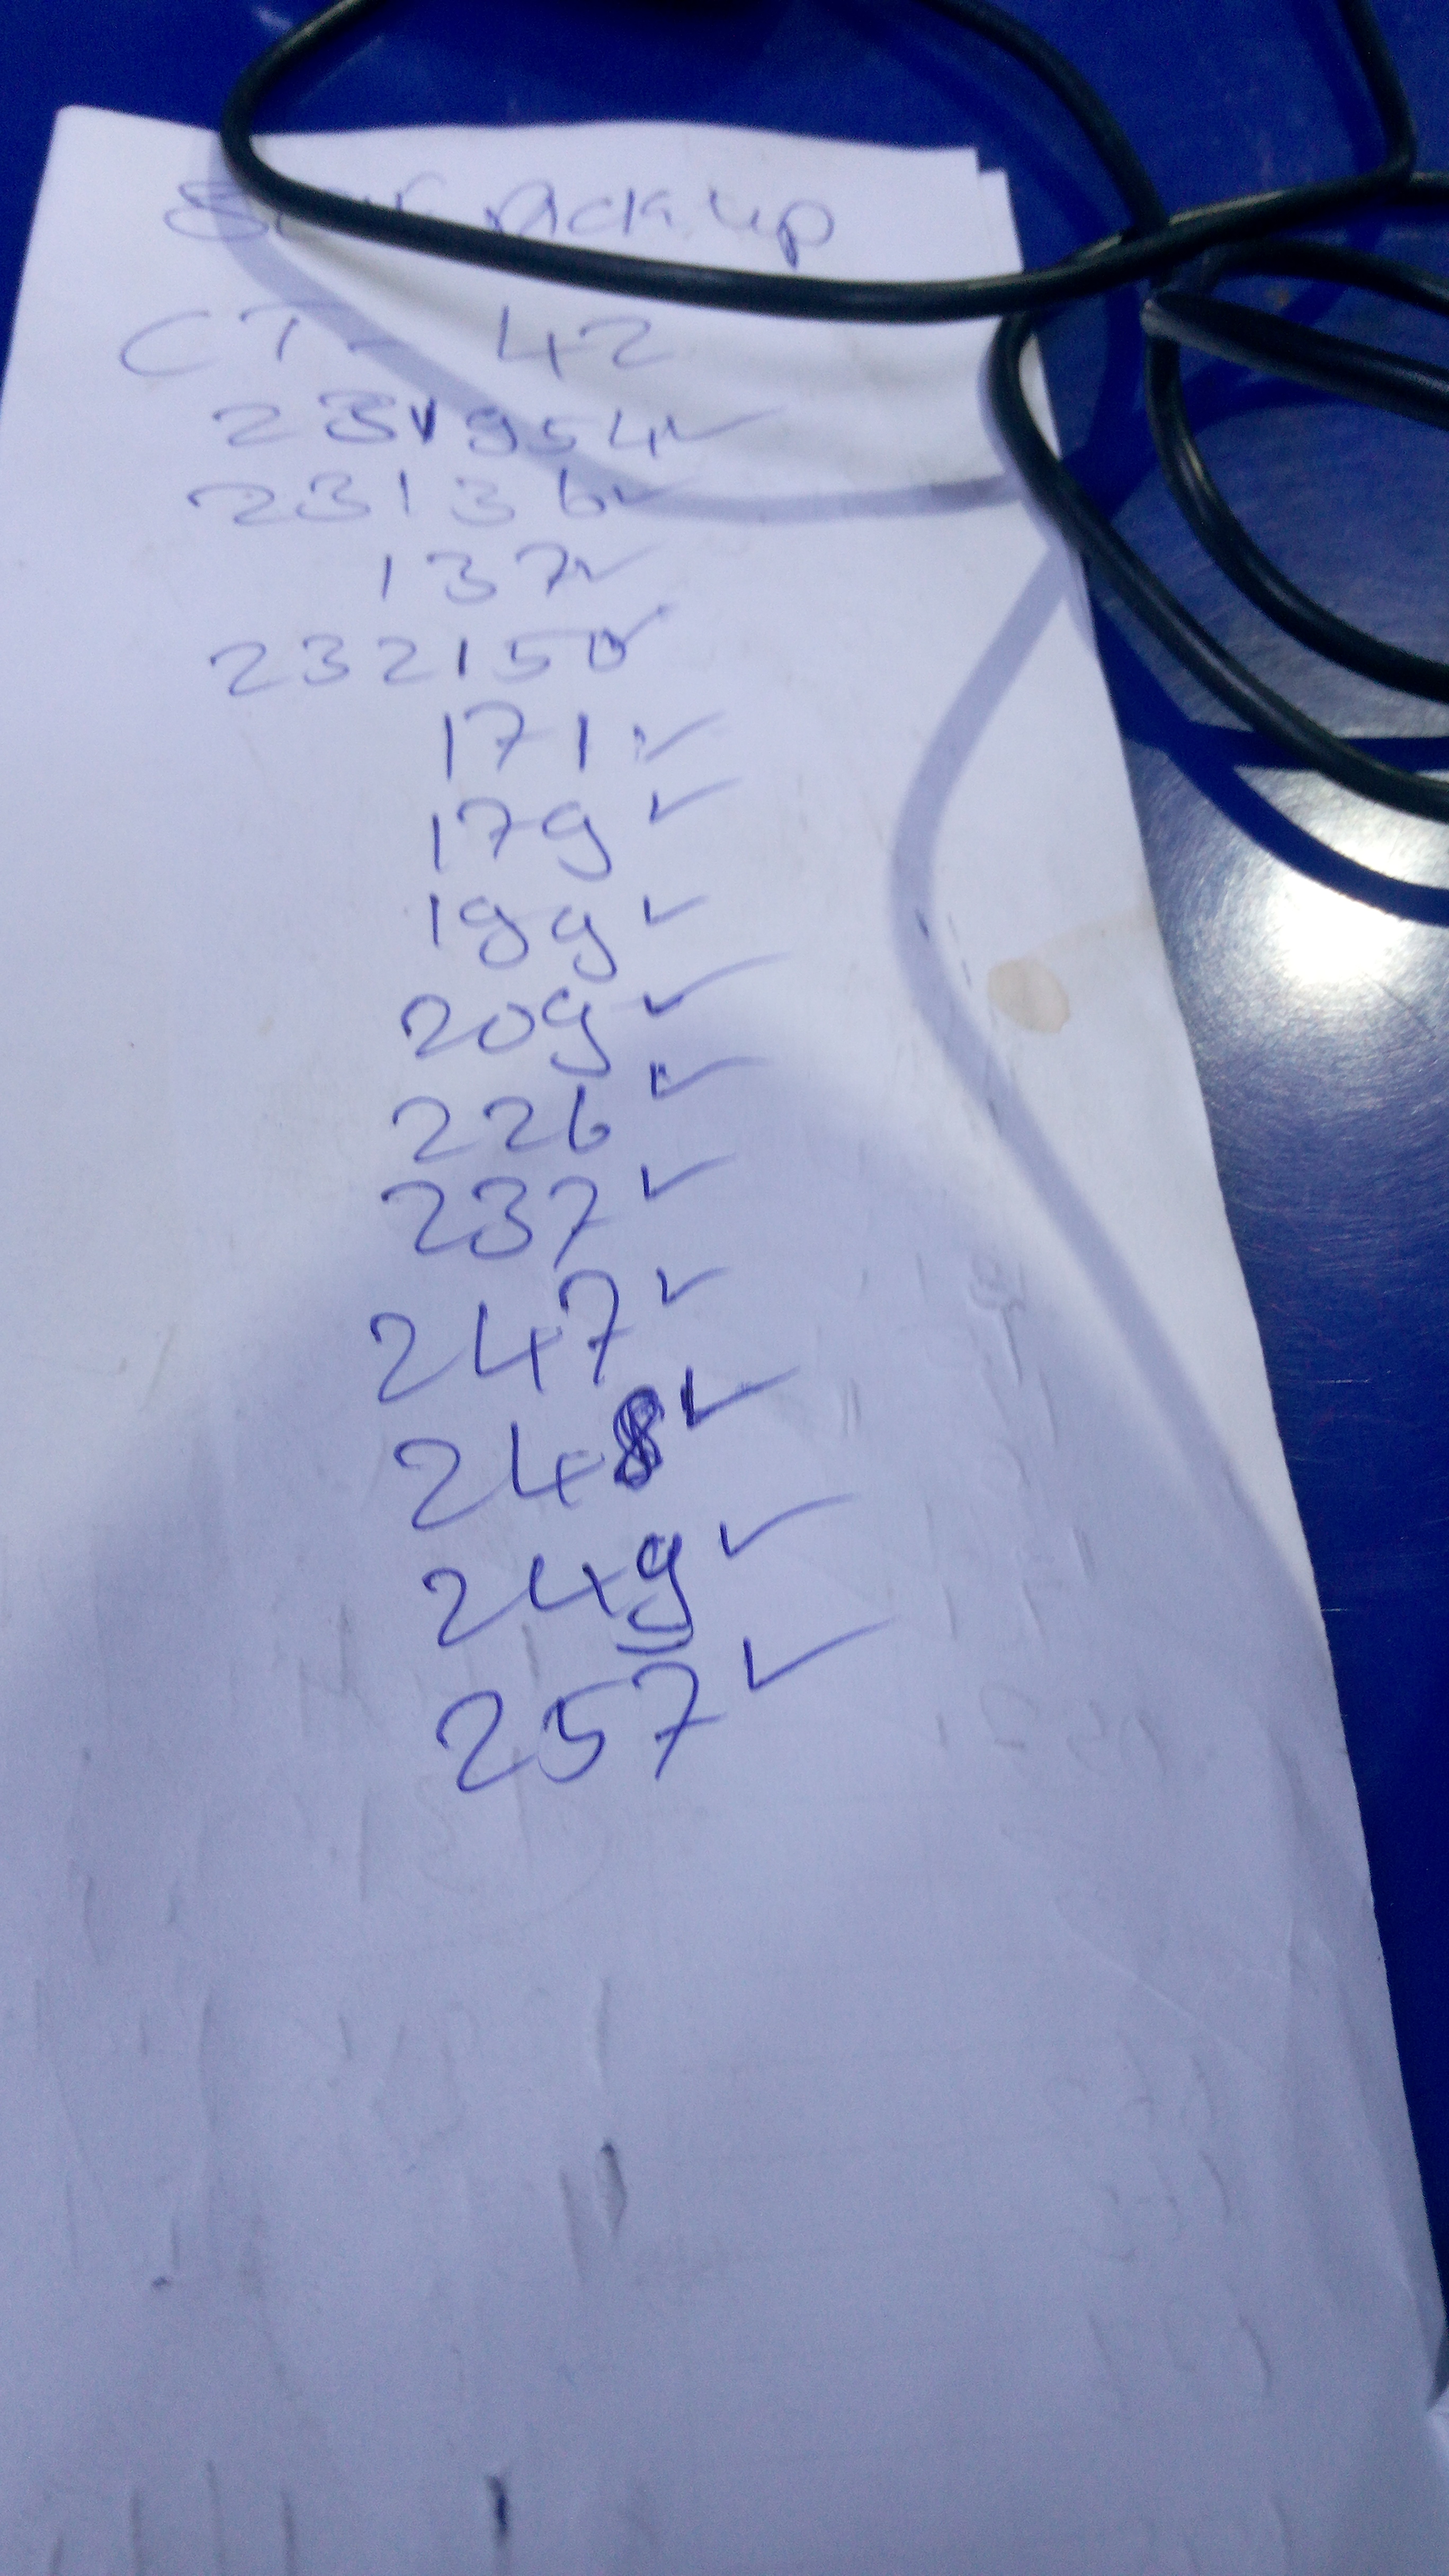 pickup
CT- 42
231954 ✓
23136 ✓
137 ✓
232150 ✓
171 ✓
179 ✓
199 ✓
209 ✓
226 ✓
237 ✓
247 ✓
248 ✓
249 ✓
257 ✓